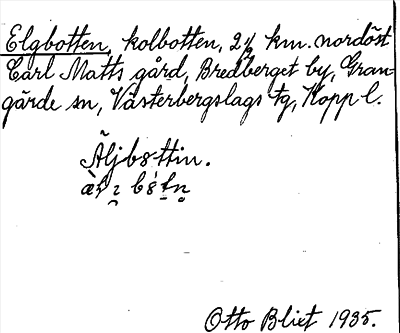 Elgbotten, kolbotten, 2½ km. nordöst
Carl Matts gård, Bredberget by, Gran-
gärde sn, Västerbergslags tg, Kopp l.
Äljbɷttin.
Otto Blixt 1935.